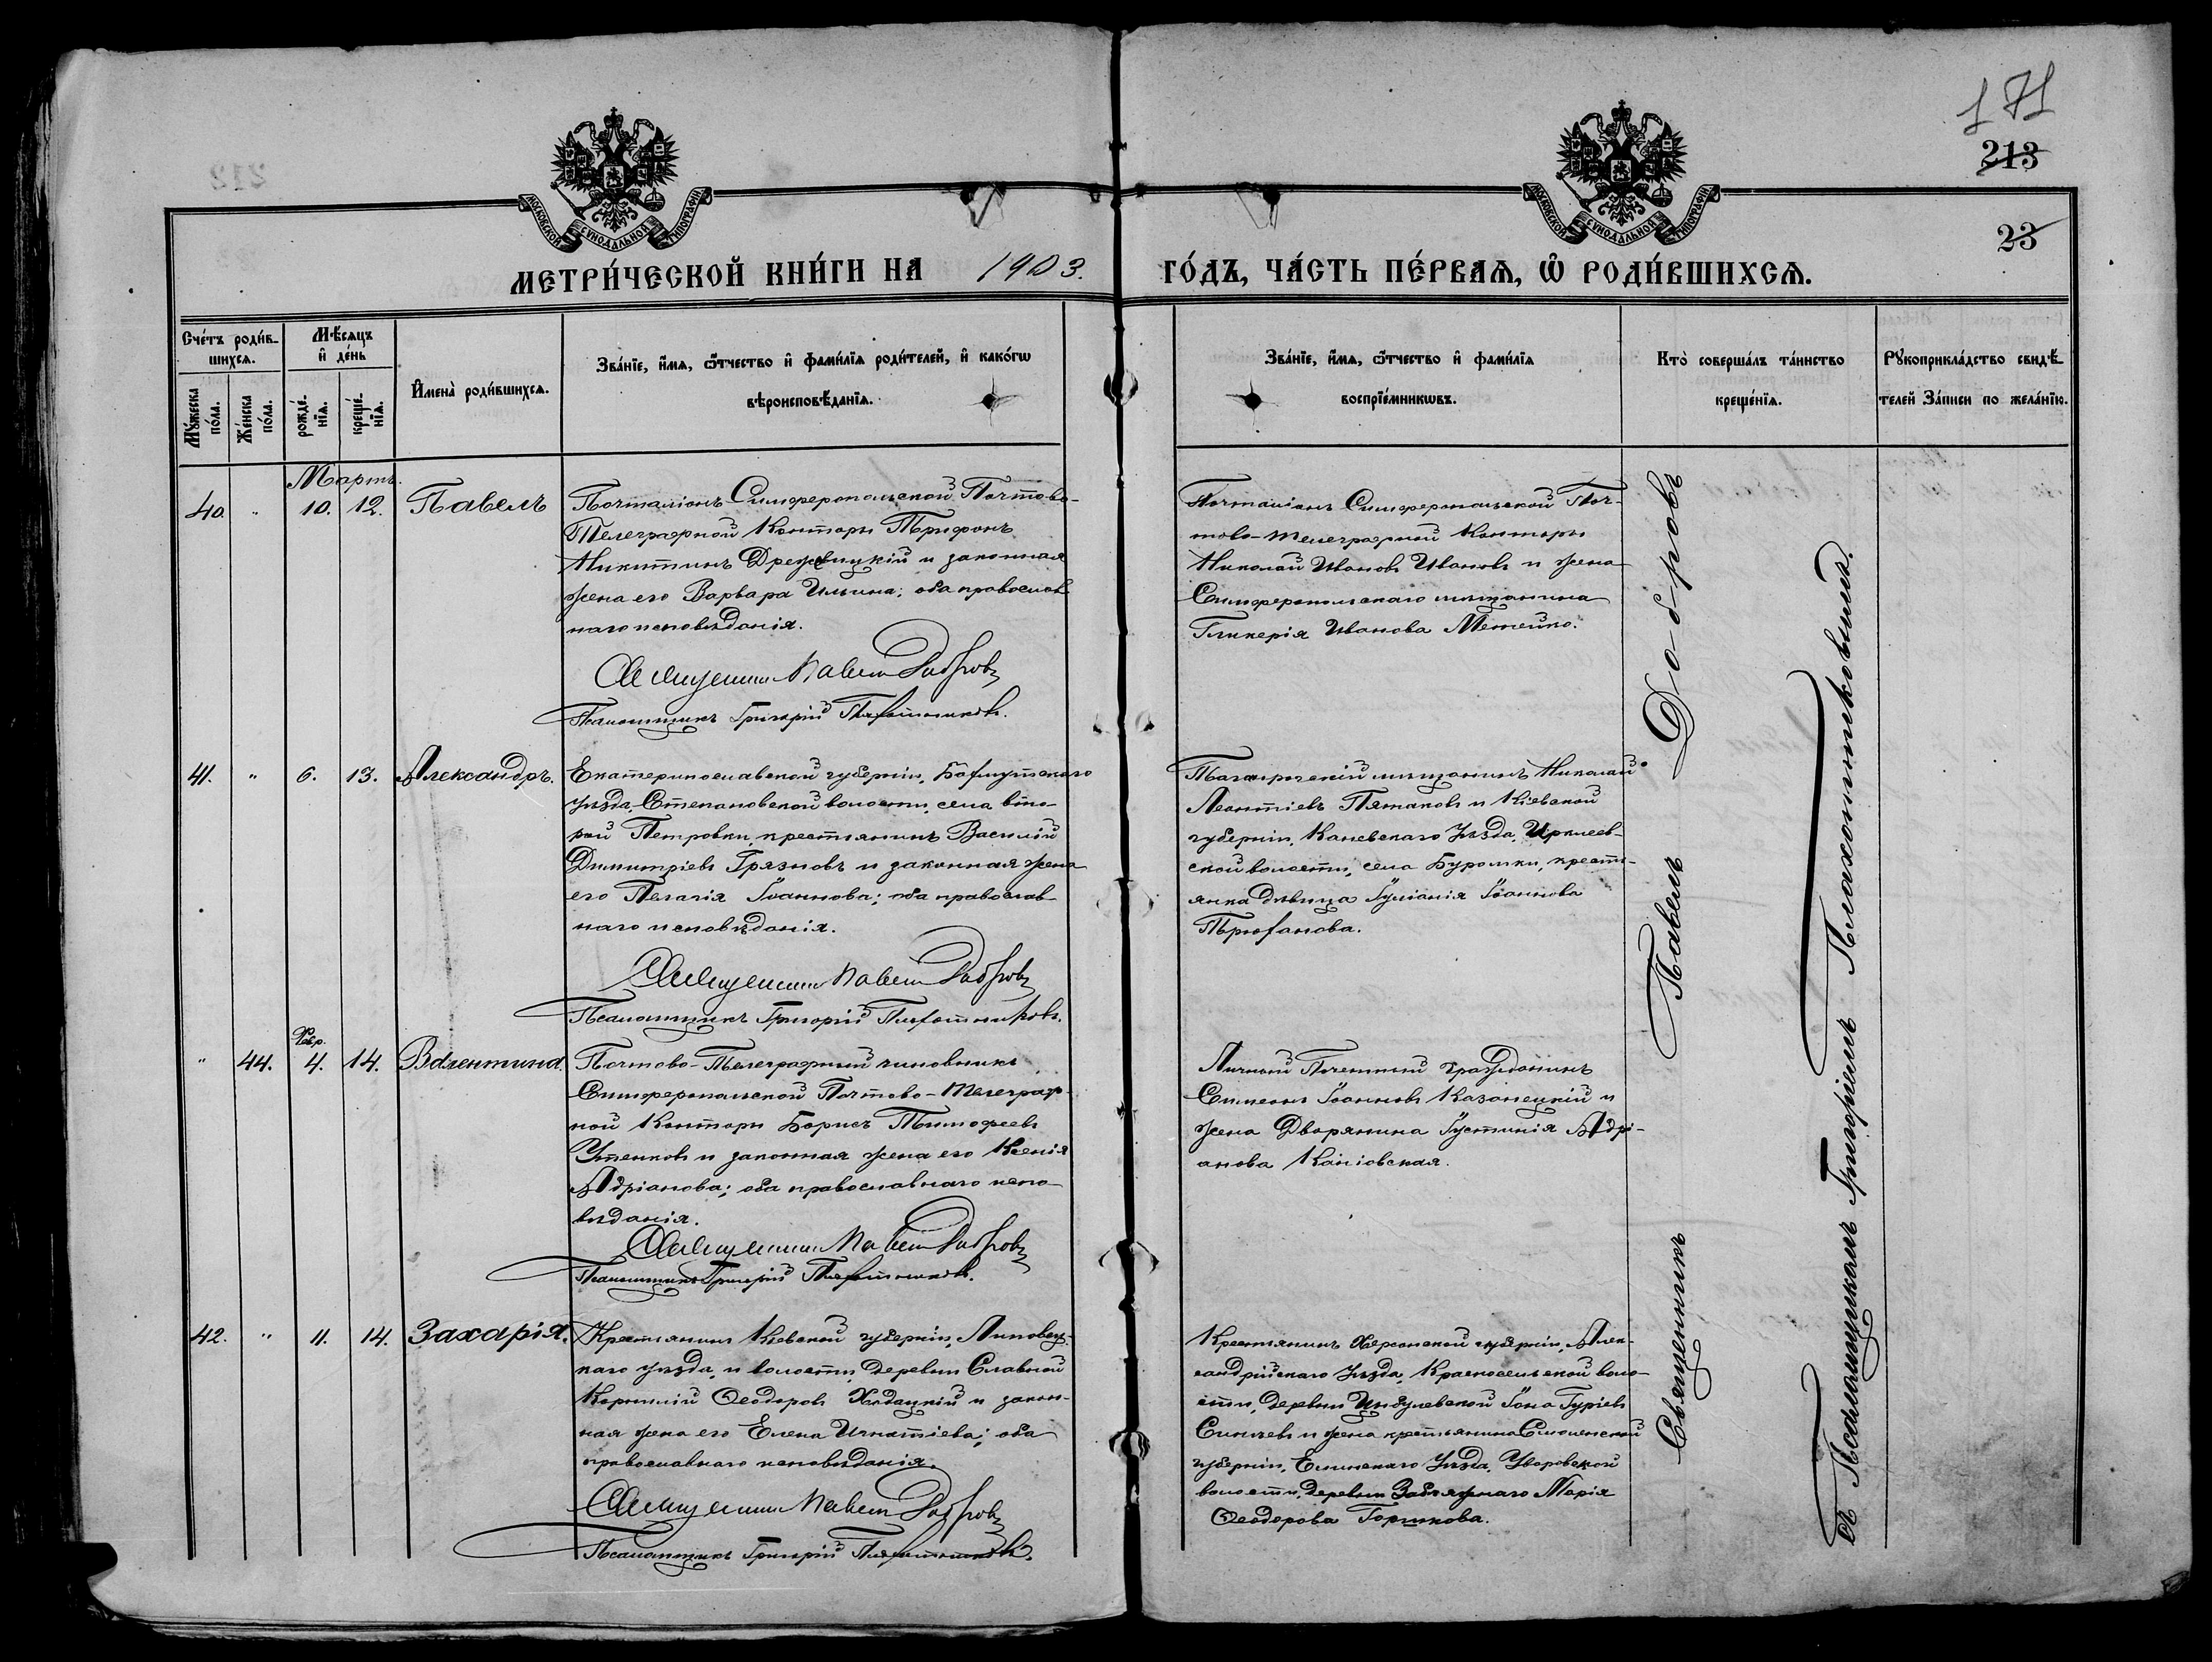 171
213
23
МОСКОВСКОЙ СУНОДАЛЬНОЙ ТИПОГРАФІИ
МОСКОВСКОЙ СУНОДАЛЬНОЙ ТИПОГРАФІИ
МЕТРИ́ЧЕСКОЙ КНИ́ГИ НА 1903. ГО́ДЪ, ЧА́СТЬ ПЕ́РВАѦ, Ѽ РОДИ́ВШИХСѦ.
Сче́тъ роди́в-
шихсѧ.
Мѣ́сѧцъ
и҆ де́нь
Мꙋ́жеска
по́ла.
Же́нска
по́ла.
рожде́-
нїѧ.
креще́-
нїѧ.
И҆мена̀ роди́вшихсѧ.
Зва́нїе, и҆́мѧ, ѻ҆́тчество и҆ фами́лїѧ роди́телей, и҆ како́гѡ
вѣроисповѣ́данїѧ.
Зва́нїе, и҆́мѧ, ѻ҆́тчество и҆ фами́лїѧ
воспрїе́мникѡвъ.
Кто̀ соверша́лъ та́инство
креще́нїѧ.
Рꙋкоприкла́дство свидѣ́-
телей За́писи по жела́нїю.
Мартъ.
40. " 10. 12. Павелъ
Почталіонъ Симферопольской Почтово-
Телеграфной Конторы Трифонъ
Никитинъ и законная
жена его Варвара Ильина; оба православ
наго исповѣданія.
Священникъ Павелъ Добровъ
Псаломщикъ Григорій Плахотниковъ.
Почталіонъ Симферопольской Поч-
тово-телеграфной Конторы
Николай Ивановъ Ивановъ и жена
Симферопольскаго мѣщанина
Гликерія Иванова Метейко.
41. " 6. 13. Александръ.
Екатеринославской губерніи, Бахмутскаго
уѣзда Степановской волости, села вто-
рой Петровки, крестьянинъ Василій
Димитріевъ Грязновъ и законная жена
его Пелагія Іоаннова; оба православ-
наго исповѣданія.
Священникъ Павелъ Добровъ
Псаломщикъ Григорій Плахотниковъ.
Таганрогскій мѣщанинъ Николай
Леонтіевъ Пятаковъ и Кіевской
губерніи, Каневскаго уѣзда, Ирклеев-
ской волости, села Буромки, кресть-
янка дѣвица Іуліанія Іоаннова
Трюханова.
Февр.
" 44. 4. 14. Валентина.
Почтово-Телеграфный чиновникъ
Симферопольской Почтово-Телеграф-
ной Конторы Борисъ Тимофеевъ
Утенковъ и законная жена его Ксенія
Адріанова; оба православнаго испо-
вѣданія.
Священникъ Павелъ Добровъ
Псаломщикъ Григорій Плахотниковъ.
Личный Почетный Гражданинъ
Симеонъ Іоанновъ Казанецкій и
жена Дворянина Іустинія Адрі-
анова Каніовская.
42. " 11. 14. Захарія.
Крестьянинъ Кіевской губерніи, Липовец-
каго уѣзда, и волости, деревни Славной
Корнилій Ѳеодоровъ и закон-
ная жена его Елена Игнатіева; оба
православнаго исповѣданія.
Священникъ Павелъ Добровъ
Псаломщикъ Григорій Плахотниковъ.
Крестьянинъ Херсонской губерніи, Алек-
сандрійскаго уѣзда, Красносельской воло-
сти, деревни Іона Гуріевъ
и жена крестьянина Смоленской
губерніи, Ельнинскаго уѣзда, Уваровской
волости, деревни Марія
Ѳеодорова Горшкова.
Священникъ Павелъ Добровъ
съ Псаломщикомъ Григоріемъ Плахотниковымъ.